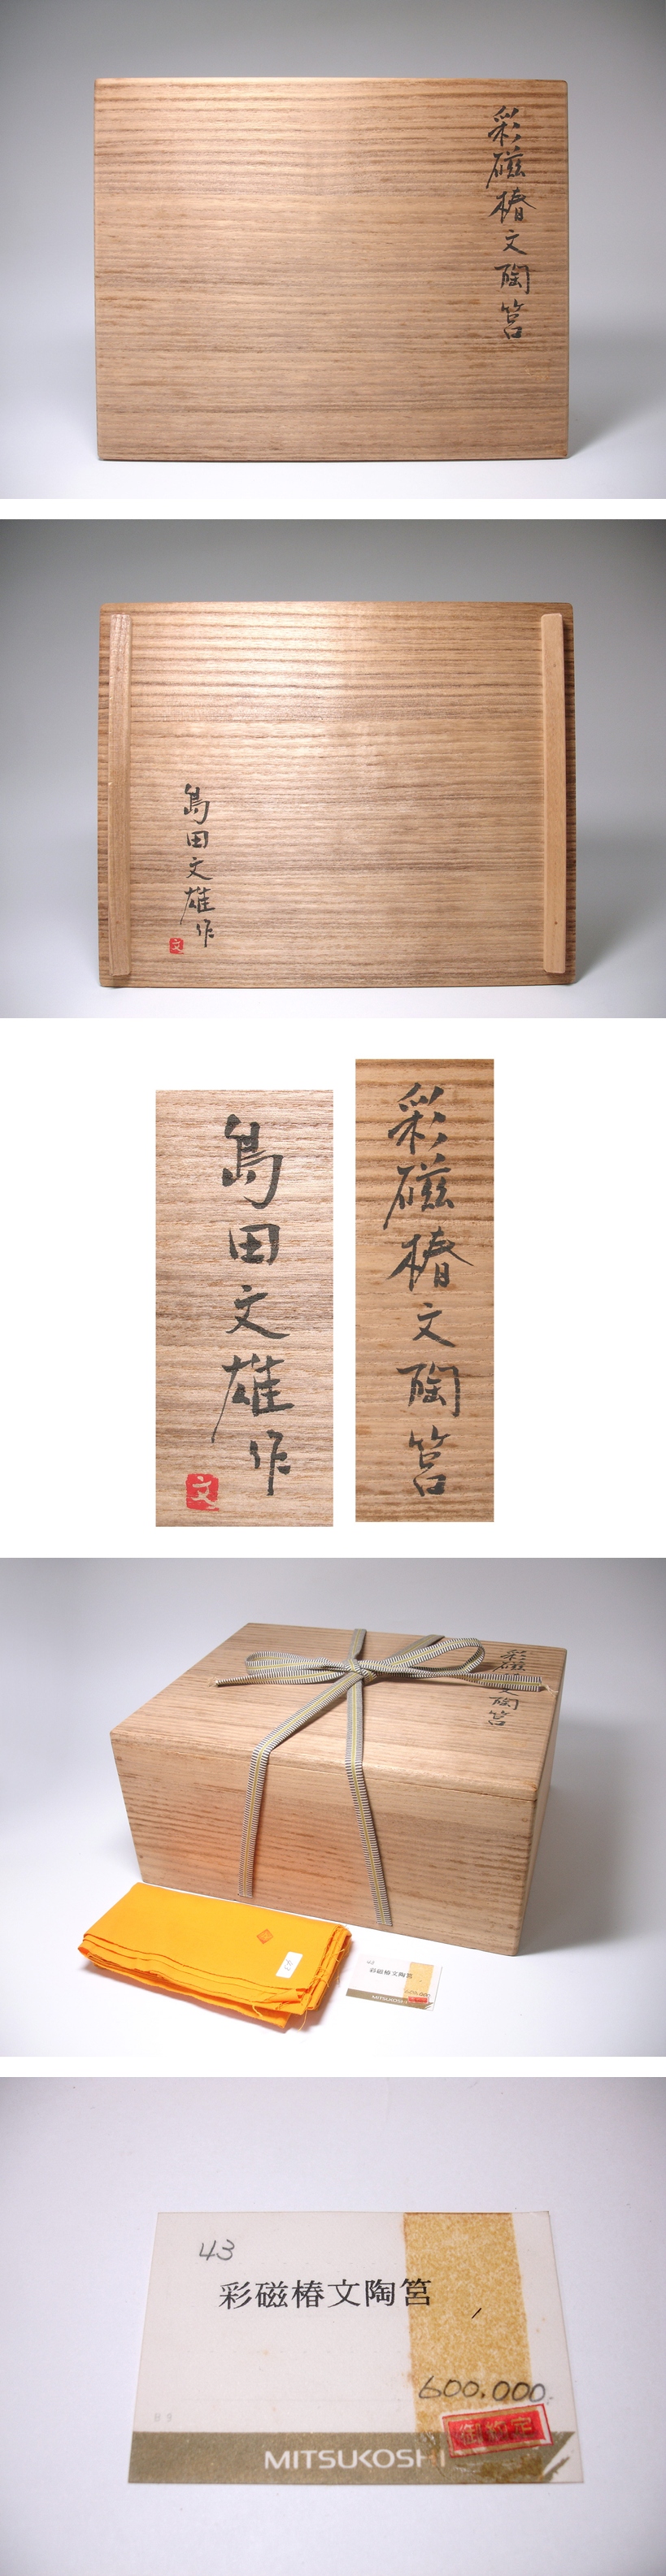 彩磁椿文陶筥
島田文雄作
文
島田文雄作
文
彩磁椿文陶筥
彩磁椿文陶筥
43
彩磁椿文陶筥
600,000
MITSUKOSHI
43
彩磁椿文陶筥
600,000.
御約定
MITSUKOSHI